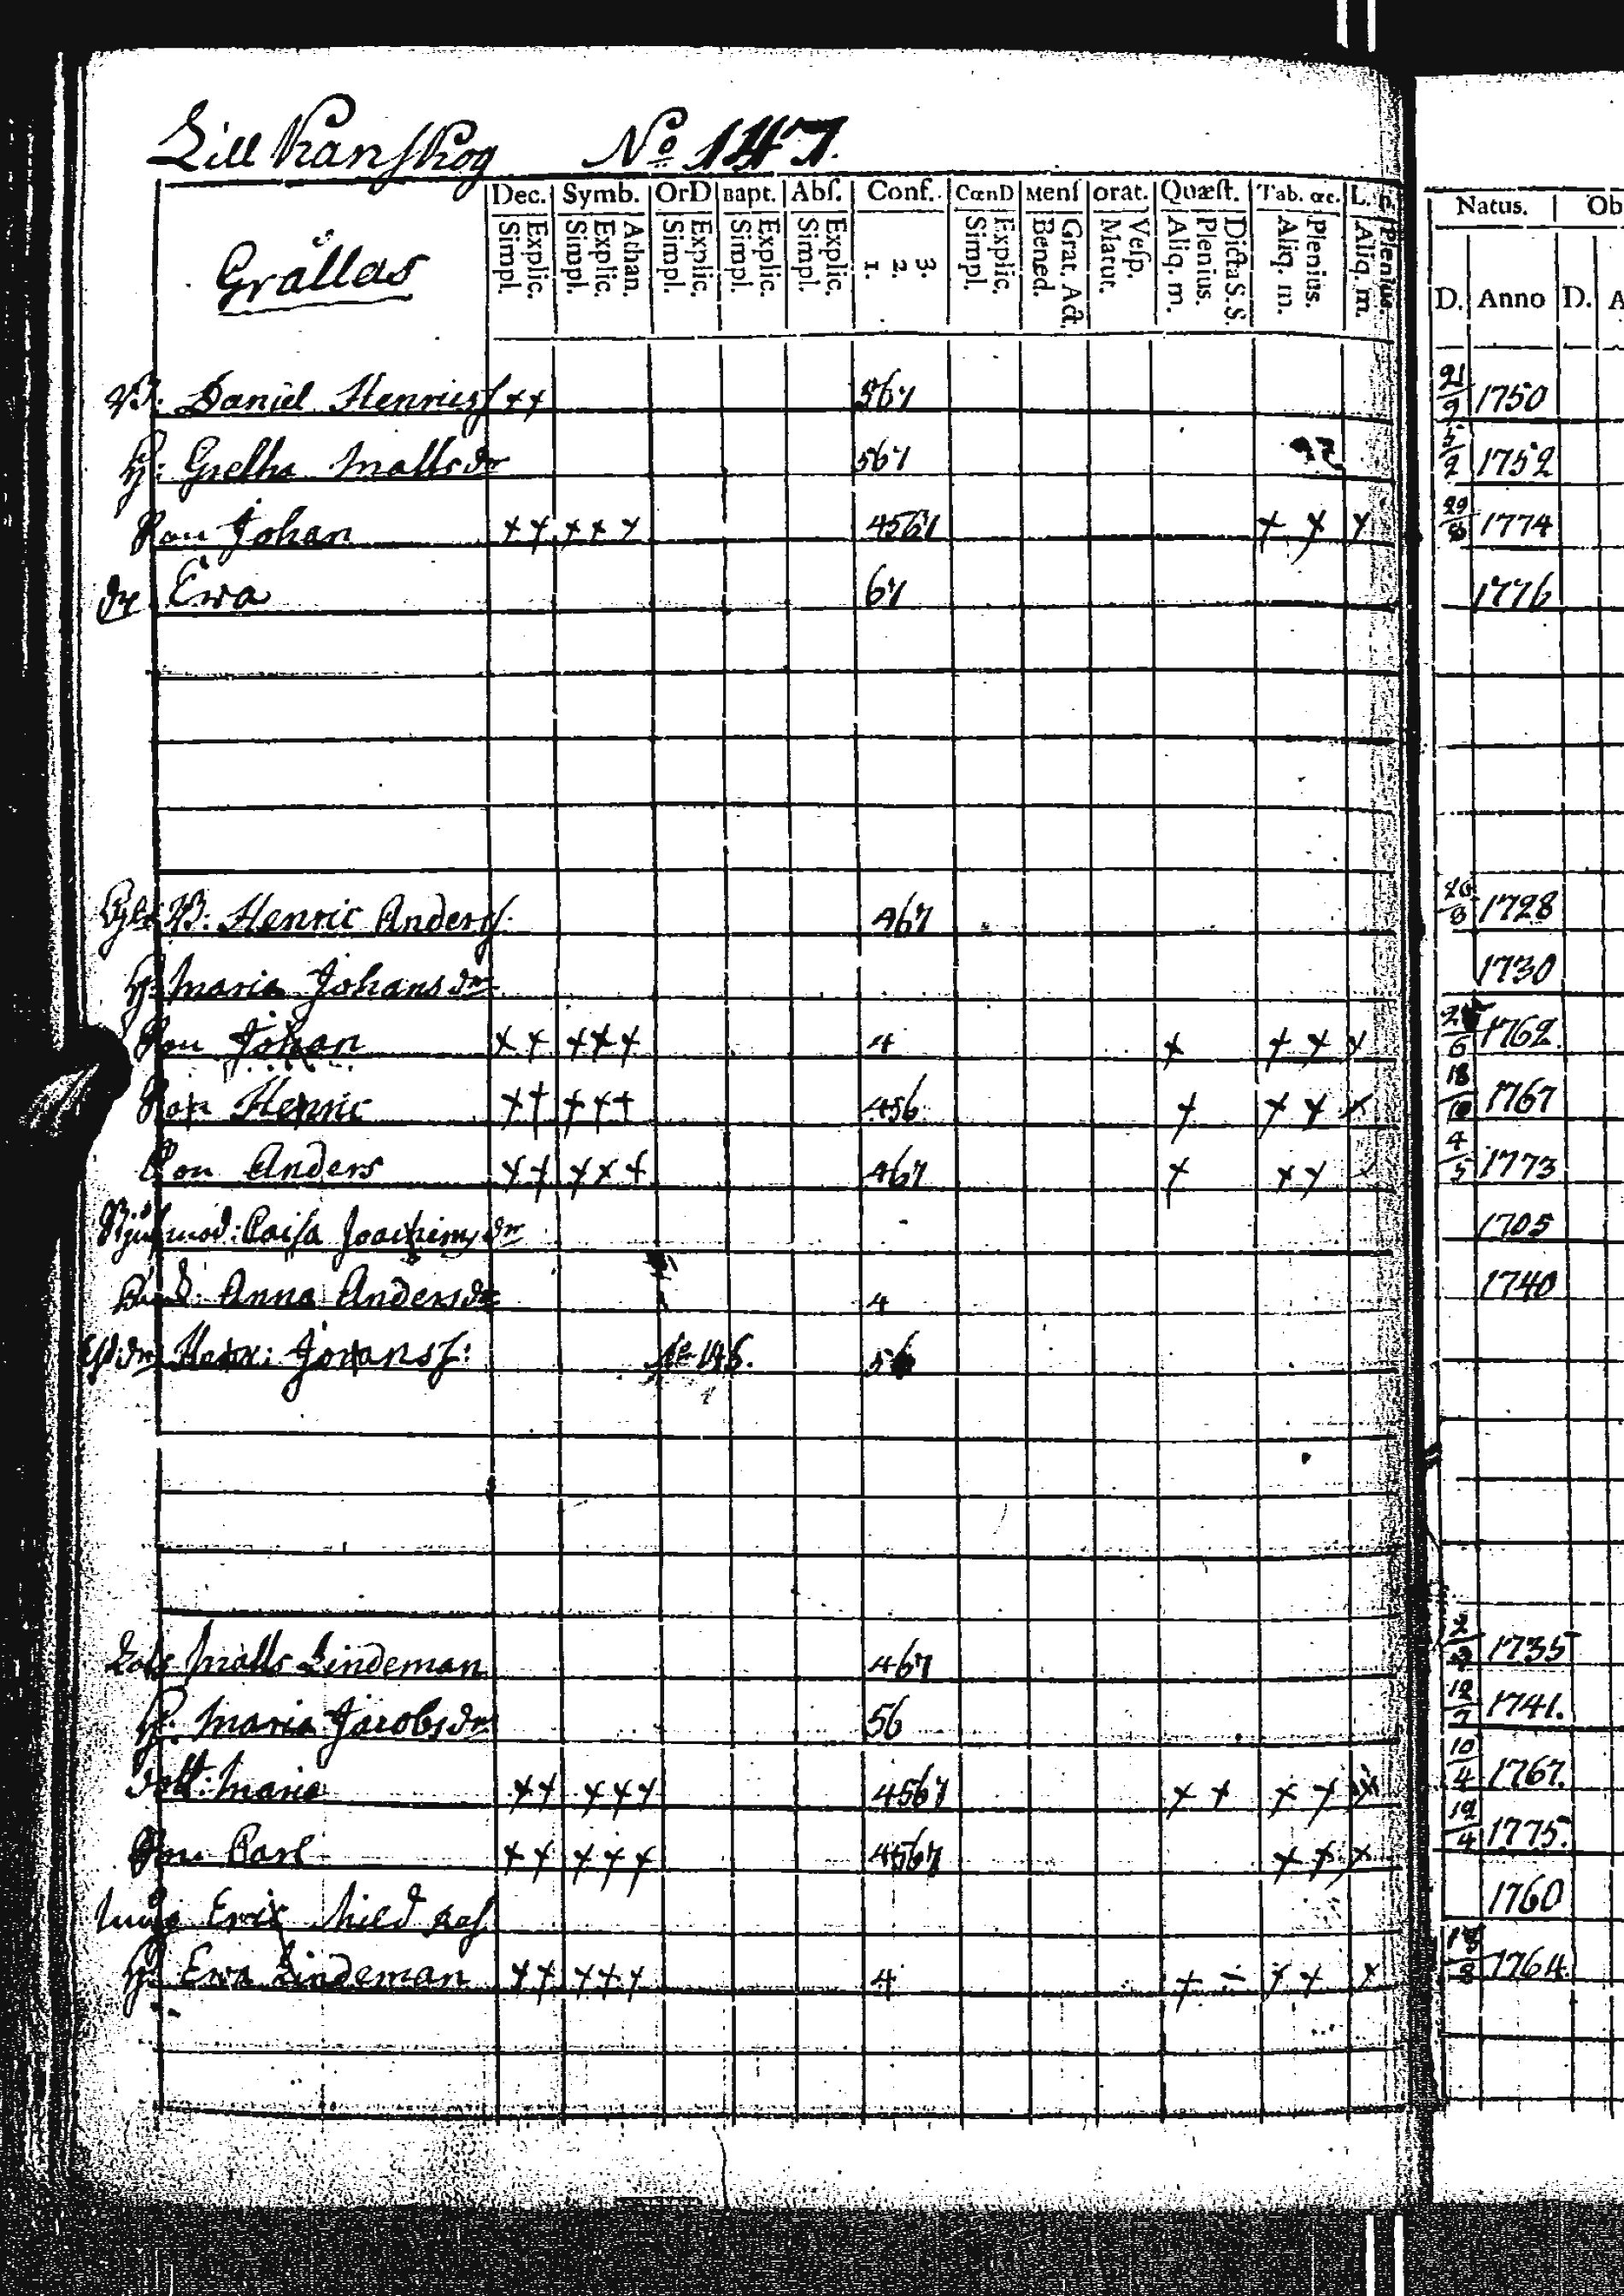 Lill Ranskog No 147.
Dec. Symb. OrD Bapt. Abſ. Conf. CœnD Menſ orat. Quæſt. Tab. œc. L. p. Natus. Ob
Grällas Simpl. Explic. Simpl. Explic. Athan. Simpl. Explic. Simpl. Explic. Simpl. Explic. 1. 2. 3. Simpl. Explic. Bened. Grat. Act. Matut. Veſp. Aliq. m. Plenius. Dicta S. S. Aliq. m. Plenius. Aliq. m. Plenius. D. Anno D. A
B: Daniel Henricsſ ++ 567 21/9 1750
H: Gretha Matts dr 567 5/2 1752
Son Johan ++ +++ 4567 + + + 29/8 1774
dr Ewa 67 1776
B: Henric Andersſ. 467 1728
H: Maria Johans dr 1730
Son Johan ++ +++ 4 + + + + 1762
Son Henric ++ +++ 456 + + + + 18/10 1767
Son Anders ++ +++ 467 + ++ 4/5 1773
Caisa Joachims dr 1705
Anna Anders dr 4 1740
Henr: Johansſ: No 146. 56
Matts Lindeman 467 1735
H. Maria Jacobs dr 56 12/7 1741.
dott: Maria ++ +++ 4567 + + + + + 10/4 1767.
Son Carl ++ +++ 4567 + + + 12/4 1775.
Eric 1760
H: Ewa Lindeman ++ +++ 4 + ÷ + + + 18/8 1764.